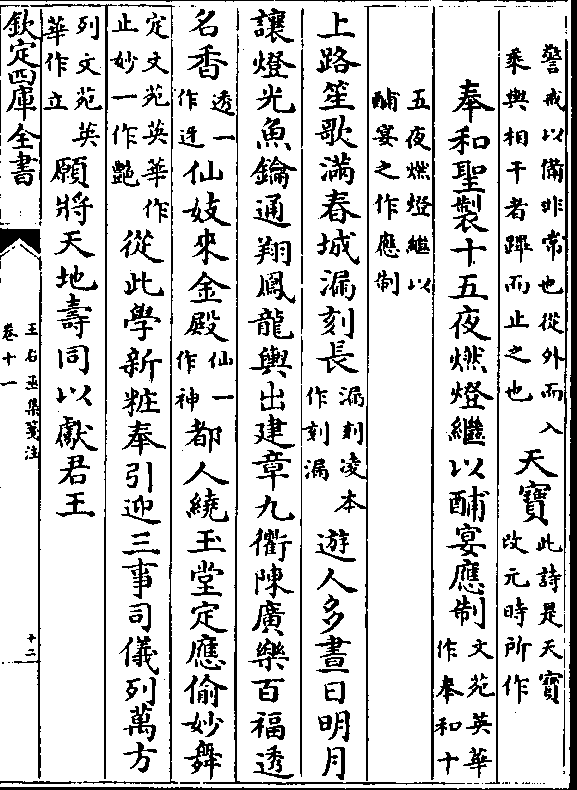 警戒以備非常也從外而入
乘輿相干者蹕而止之也
天寶
此詩是天寶
改元時所作
奉和聖製十五夜燃燈繼以酺宴應制
文苑英華
作奉和十
五夜燃燈繼以
酺宴之作應制
上路笙歌滿春城漏刻長
漏刻凌本
作刻漏
遊人多晝日明月
讓燈光魚鑰通翔鳳龍輿出建章九衢陳廣樂百福透
名香
透一
作迸
仙妓來金殿
仙一
作神
都人繞玉堂定應偷妙舞
定文苑英華作
止妙一作艶
從此學新粧奉引迎三事司儀列萬方
列文苑英
華作立
願將天地壽同以獻君王
欽定四庫全書
王右丞集箋注
卷十一
十二